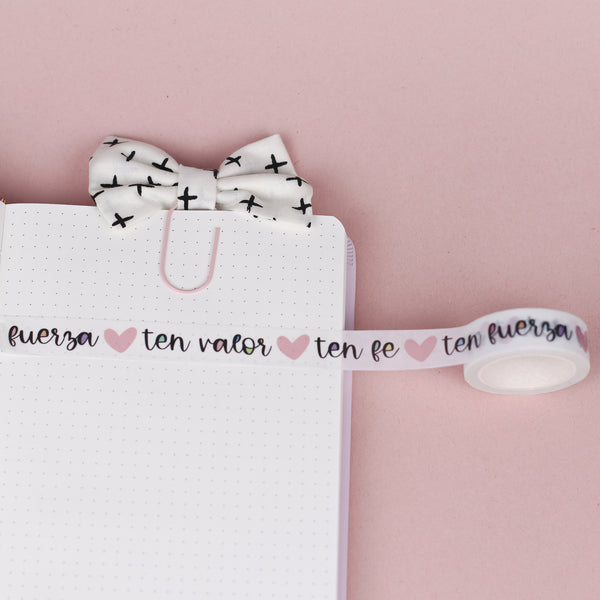 fuerza ten valor ten fe ten fuerza